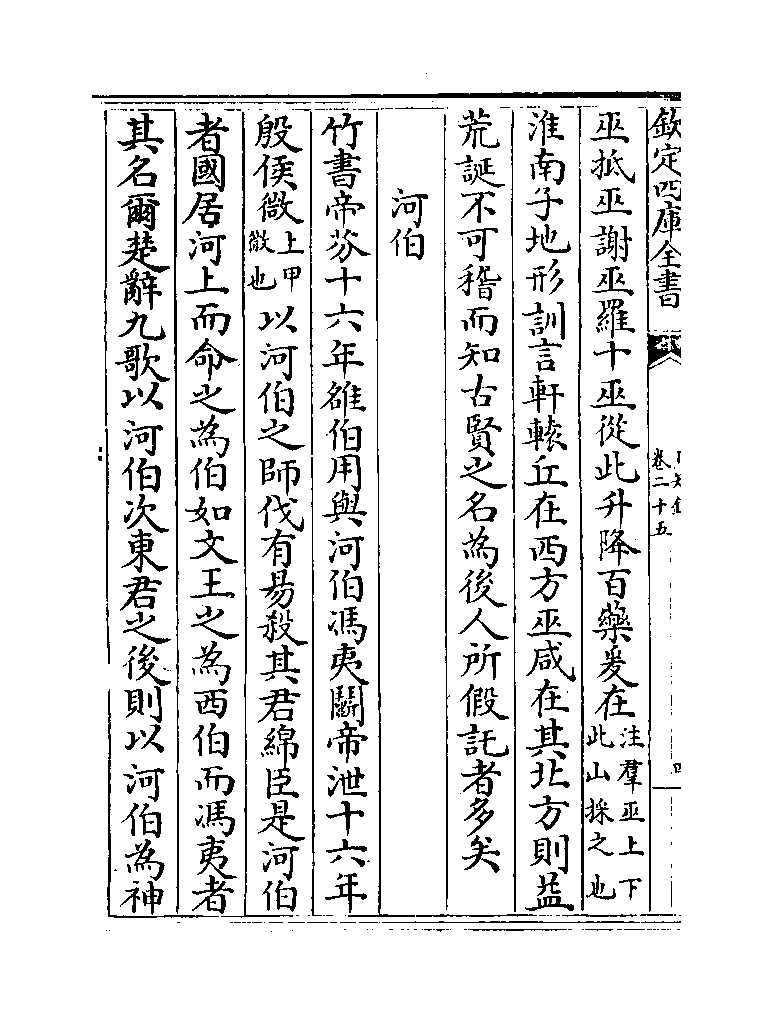 欽定四庫全書
卷二十五
巫抵巫謝巫羅十巫從此升降百藥爰在注羣巫上下此山採之也
淮南子地形訓言軒轅丘在西方巫咸在其北方則益
荒誕不可稽而知古賢之名為後人所假託者多矣
河伯
竹書帝芬十六年雒伯用與河伯馮夷鬭帝泄十六年
殷侯微上甲微也以河伯之師伐有易殺其君綿臣是河伯
者國居河上而命之為伯如文王之為西伯而馮夷者
其名爾楚辭九歌以河伯次東君之後則以河伯為神